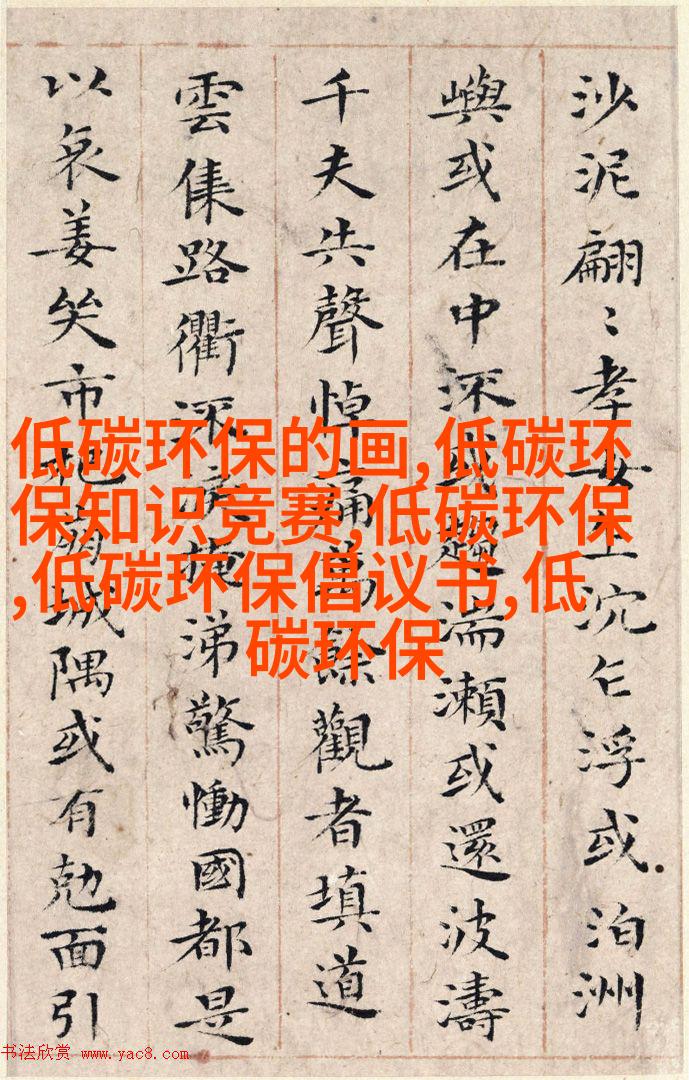 沙泥翩〻孝女乍沉乍浮或泊洲
嶼或在中流或趨湍瀨或還波濤
千夫失聲悼痛萬餘觀者填道
雲集路衢流淚掩涕驚慟國都是
以哀姜哭市杞崩城隅或有勊面引
低碳环保的画,低碳环
保知识竞赛,低碳环保
,低碳环保倡议书,低
碳环保
书法欣赏 www.yac8.com